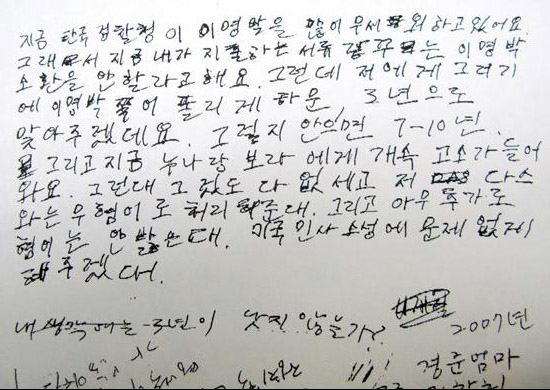 지금 한국 검찰청이 이명박을 많이 무서워하고있어요.
그래서 지금 내가 제출하는 서류 는 이명박
소환을 안할라고해요. 그런데 저에게 그러기
에 이명박 풀리게 하문, 3년으로
맞아주켔데요. 그렇지 안으면 7-10년.
그리고 지금 누나랑 보라에게 개속 고소가 들어
와요. 그런대 그것도 다 없세고 저 다스
와는 무혐이로 처리 해준대. 그리고 아무 추가로
혐이는 안 받는대. 미국 민사소성에 문제 없게
해주겠대.
내 생각에는 3년이 낫지 않을가?
2007년
경준엄마